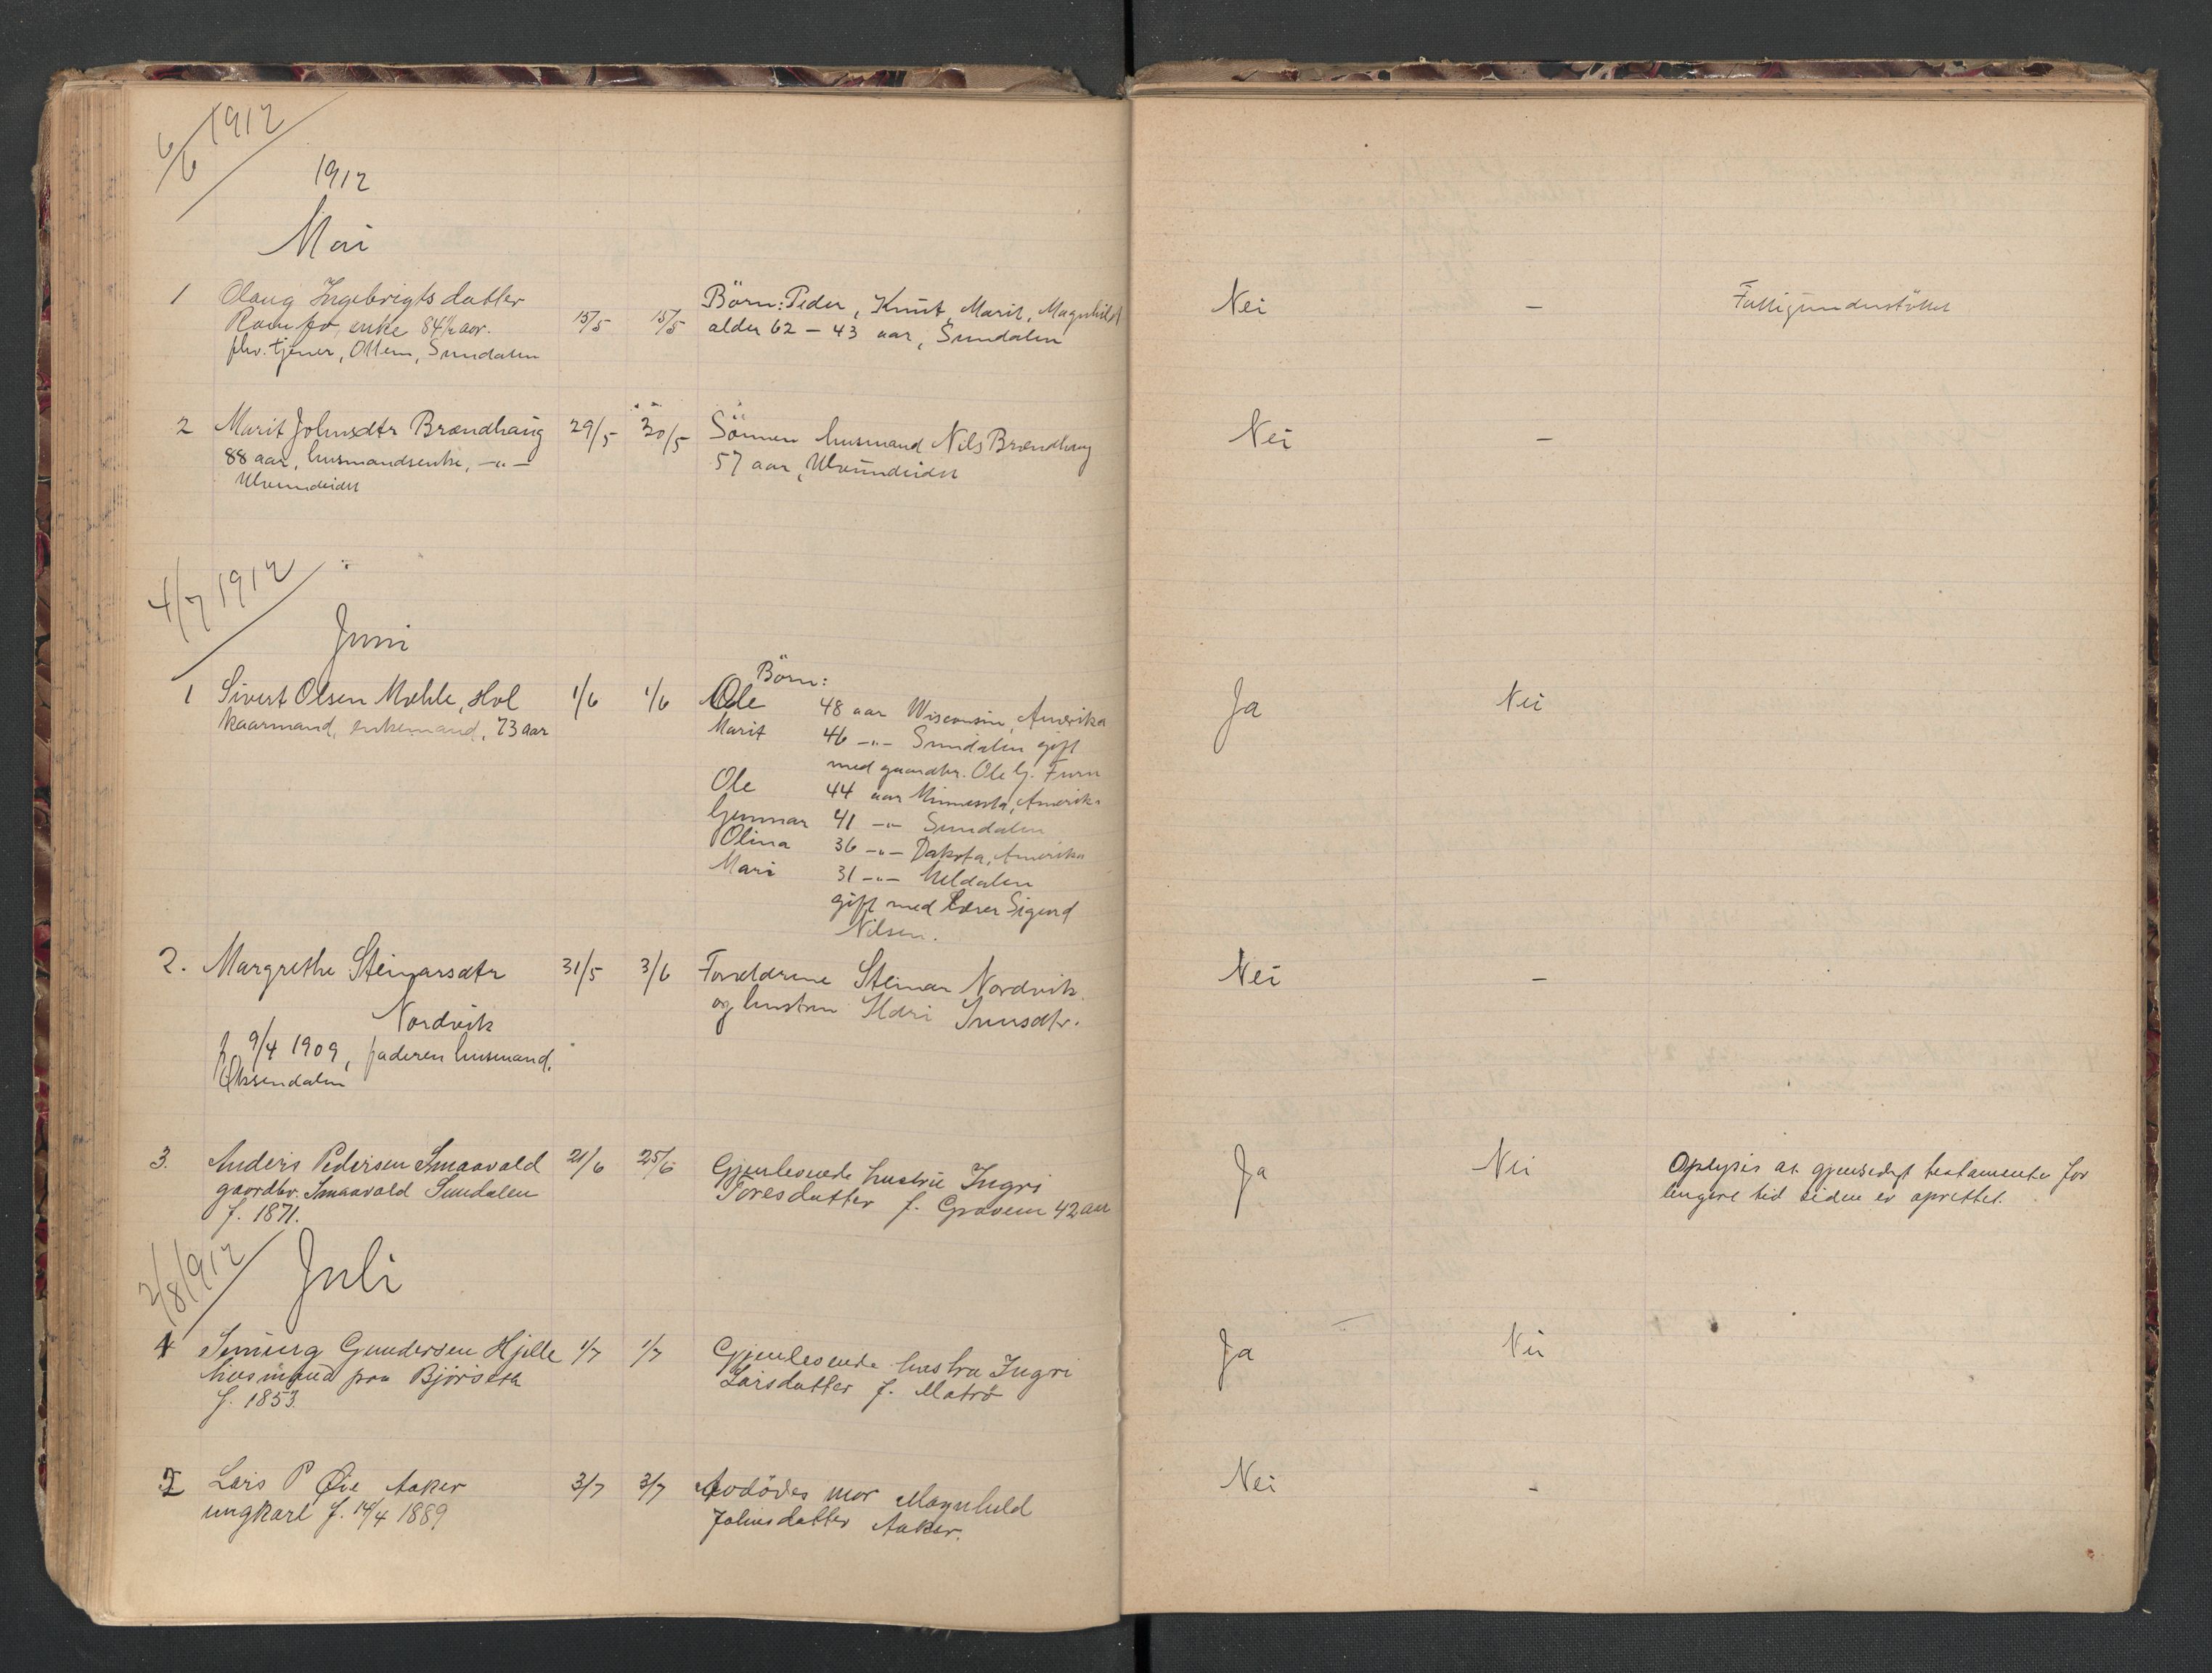 6/6 1912
1912
Mai
1 Olaug Ingebrigtsdatter 15/5 15/5 Börn: Peder, Knut, Marit, Magnhild Nei — Fattigunderstöttet
Romfo, enke 84½ aar. alder 62 – 43 aar, Sundalen
fhv. tjener, Ottem, Sundalen
2 Marit Johnsdtr Brændhaug 29/5 30/5 Sönnen husmand Nils Brændhaug Nei —
88 aar, husmandsenke, —„— 57 aar, Ulvundeidet
Ulvundeidet
4/7 1912
Juni
Börn:
1 Sivert Olsen Mæhle, Hol 1/6 1/6 Ole 48 aar Wisconsin, Amerika Ja Nei
kaarmand, enkemand, 73 aar Marit 46 —„— Sundalen gift
med gaardbr. Ole G. Furu
Ole 44 aar Minnesota, Amerika
Gunnar 41 —„— Sundalen
Olina 36 —„— Dakota, Amerika
Mari 31 —„— Meldalen
gift med Lærer Sigurd
Nilsen.
2. Margrethe Steinarsdtr 31/5 3/6 Forældrene Steinar Nordvik Nei —
Nordvik og hustru Ildri
f 9/4 1909, faderen husmand.
Øksendalen
3. Anders Pedersen Smaavold 21/6 25/6 Gjenlevende hustru Ingri Ja Nei Oplyses at gjensidigt testamente for
gaardbr. Smaavold Sundalen Toresdatter f. Gravem 42 aar lengere tid siden er oprettet.
f. 1871.
2/8 1912
Juli
1 Gundersen Hjelle 1/7 1/7 Gjenlevende hustru Ingri Ja Nei
husmand paa Bjørseth Larsdatter f.
f. 1853.
2 Lars P Øie Aaker 3/7 3/7 Avdödes mor Magnhild Nei -
ungkarl f. 14/4 1889 Johnsdatter Aaker.